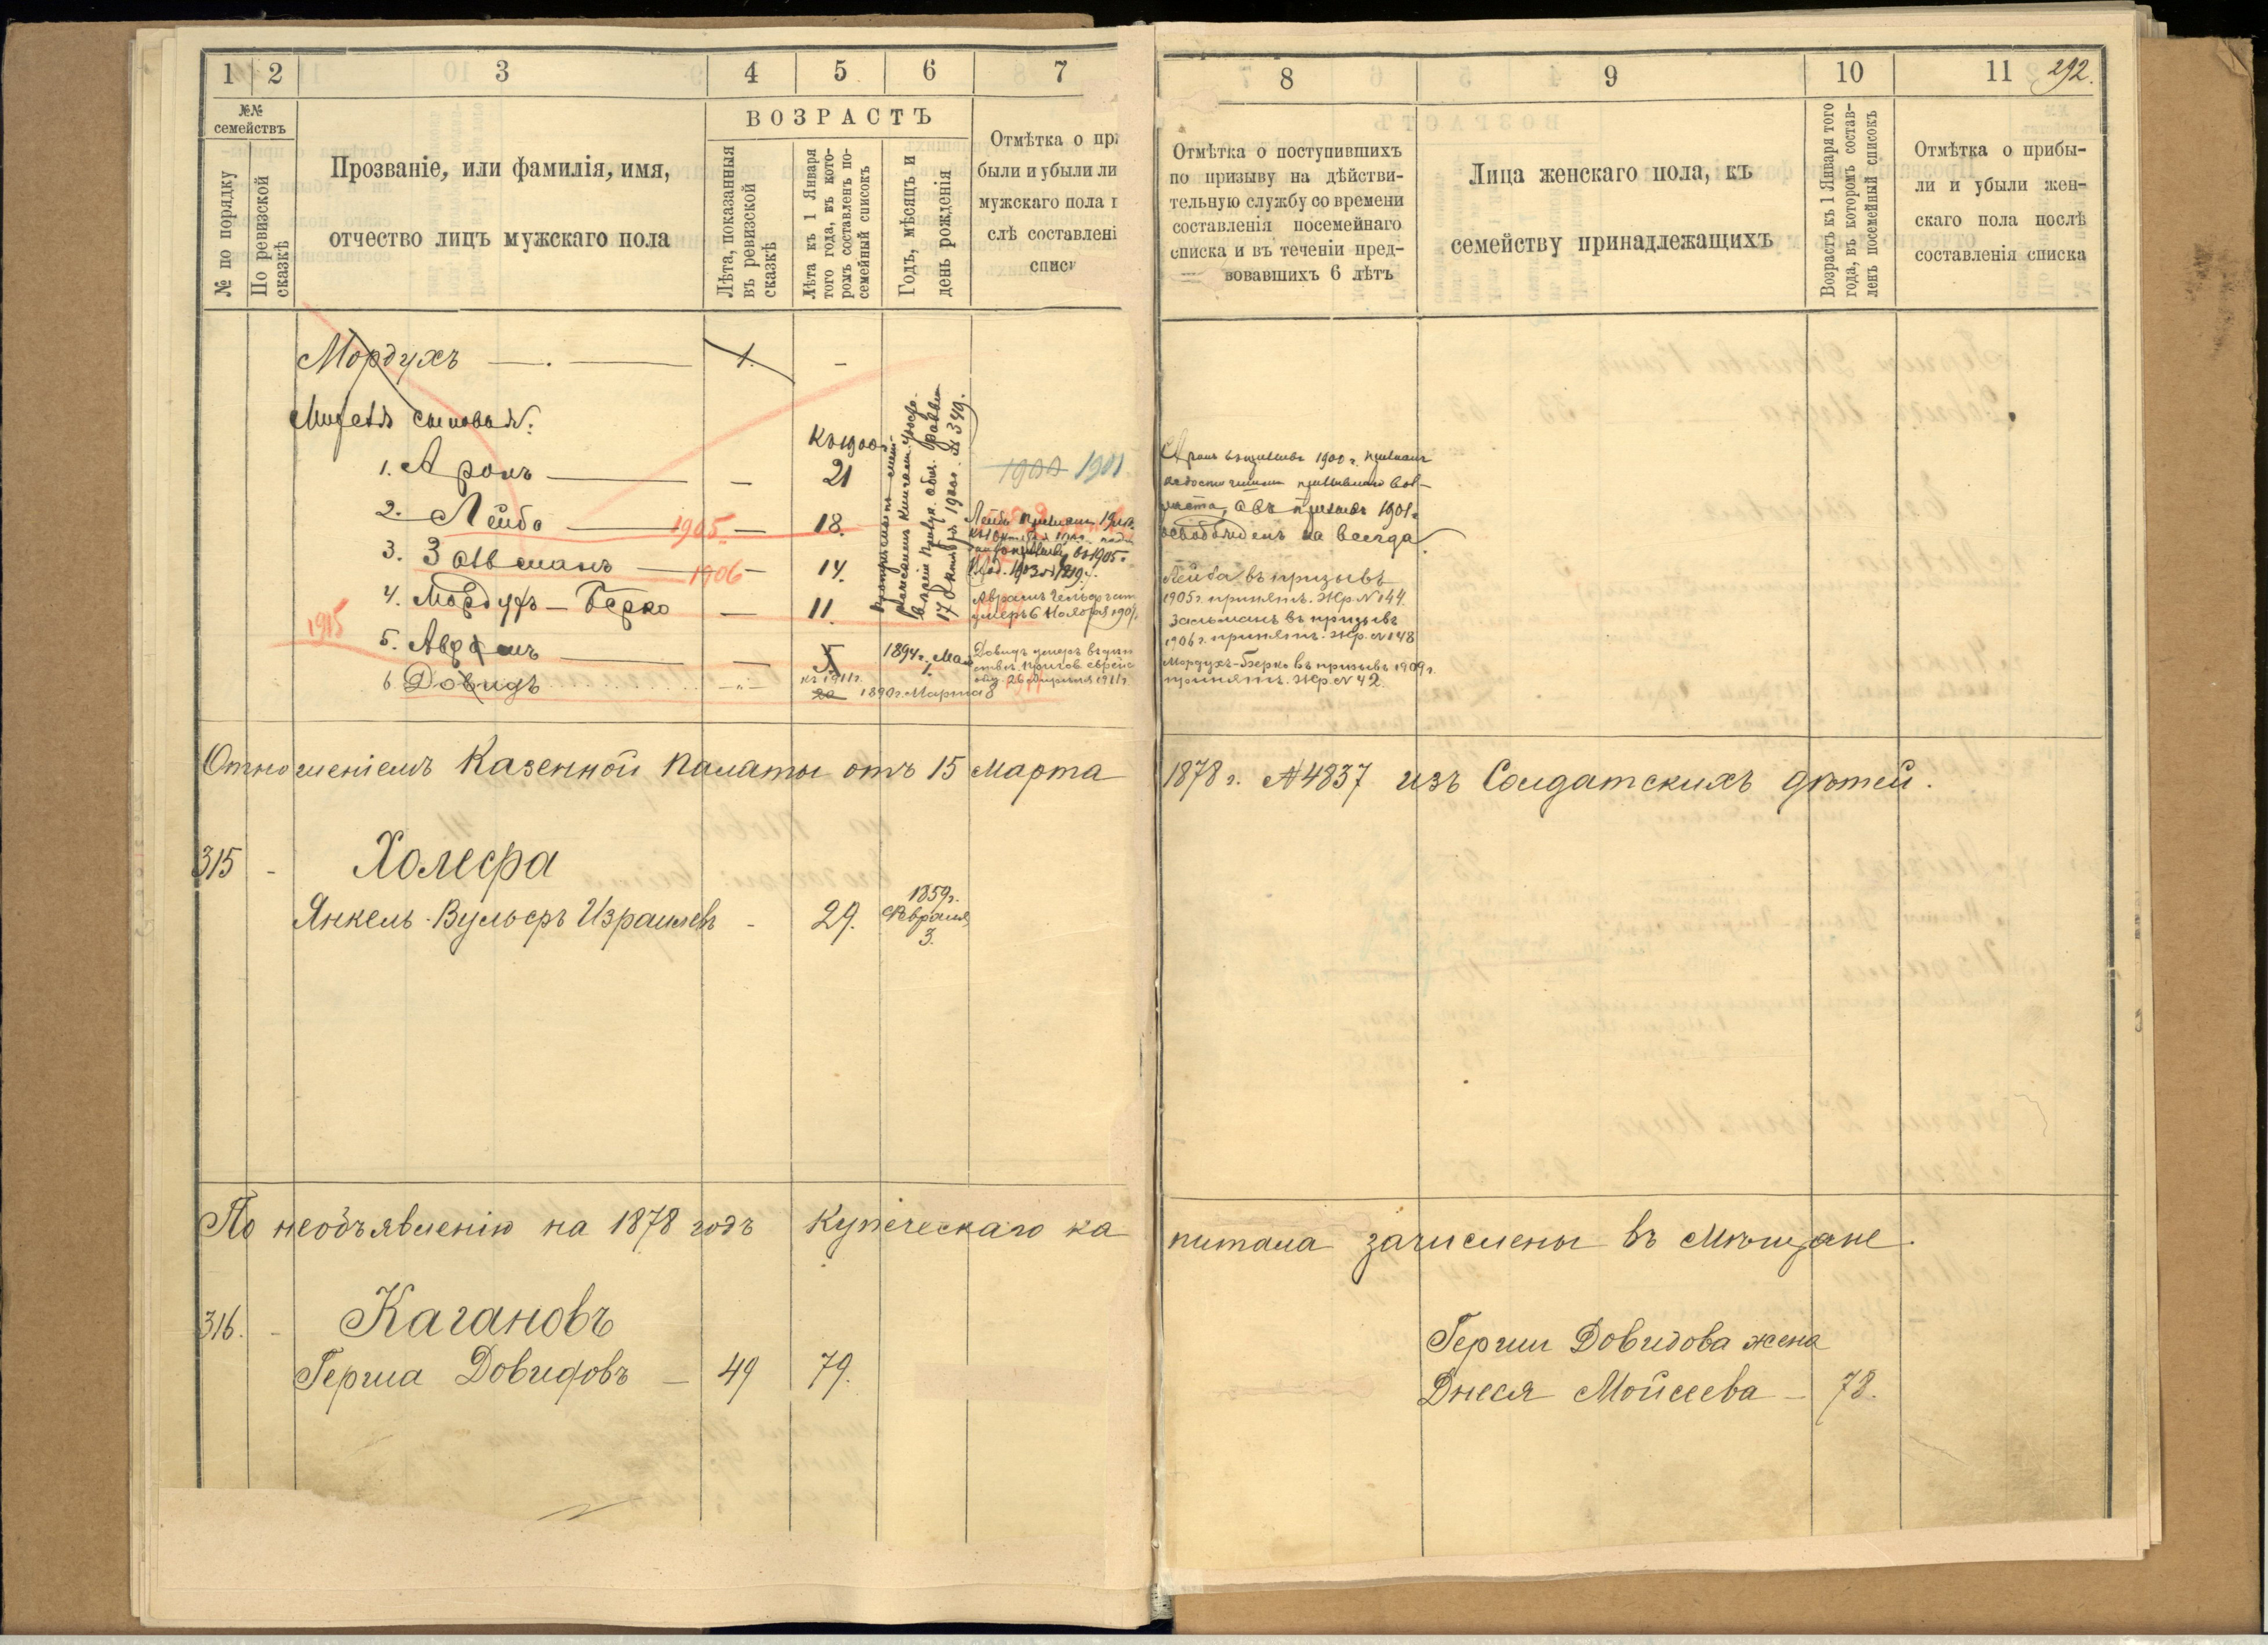 1 2 3 4 5 6 7
№№ семействъ
№ по порядку
По ревизской сказкѣ
Прозваніе, или фамилія, имя,
отчество лицъ мужскаго пола
ВОЗРАСТЪ
Лѣта, показанныя
въ ревизской
сказкѣ
Лѣта къ 1 Января
того года, въ кото-
ромъ составленъ по-
семейный списокъ
Годъ, мѣсяцъ и
день рожденія
Отмѣтка о при
были и убыли ли
мужскаго пола п
слѣ составлені
списк
Мордухъ — . — 1. -
сыновья:
Къ 1900
1. Аронъ — — 21 1900 1901
2. Лейба — 1905 — 18.
3. Залманъ — 1906 — 14.
4. Мордухъ-Берко — 11.
1915
5. Аврамъ — — 5. 1894 г. Мая 1.
6 Довидъ — къ 1911 г. 20 1890 г. Марта 8
17 Октября 1900 г. № 349.
умеръ 6 Ноября
Довидъ умеръ
общ. 26 1911 г.
Отношеніемъ Казенной Палаты отъ 15 Марта
315 - Холефа
Янкель-Вульфъ Израилевъ - 29. 1859 г. Февраля 3.
По необъявленію на 1878 годъ Купеческаго ка
316. - Кагановъ
Герша Довидовъ — 49 79.
8 9 10 11 292.
Отмѣтка о поступившихъ
по призыву на дѣйстви-
тельную службу со времени
составленія посемейнаго
списка и въ теченіи пред-
вовавшихъ 6 лѣтъ
Лица женскаго пола, къ
семейству принадлежащихъ
Возрастъ къ 1 Января того
года, въ которомъ состав-
ленъ посемейный списокъ
Отмѣтка о прибы-
ли и убыли жен-
скаго пола послѣ
составленія списка
Аронъ 1900 г. признанъ
призывнаго воз-
раста, а въ призывъ 1901 г.
освобожденъ на всегда.
Лейба въ призывѣ
1905 г. принятъ. Жр. № 144.
Залманъ въ призывѣ
1906 г. принятъ. Жр. № 148
Мордухъ-Берко въ призывѣ 1909 г.
принятъ. Жр. № 42.
1878 г. № 4837 изъ Солдатскихъ дѣтей.
питала зачислены въ Мѣщане.
Герши Довидова жена
Днеся Мойсеева — 78.